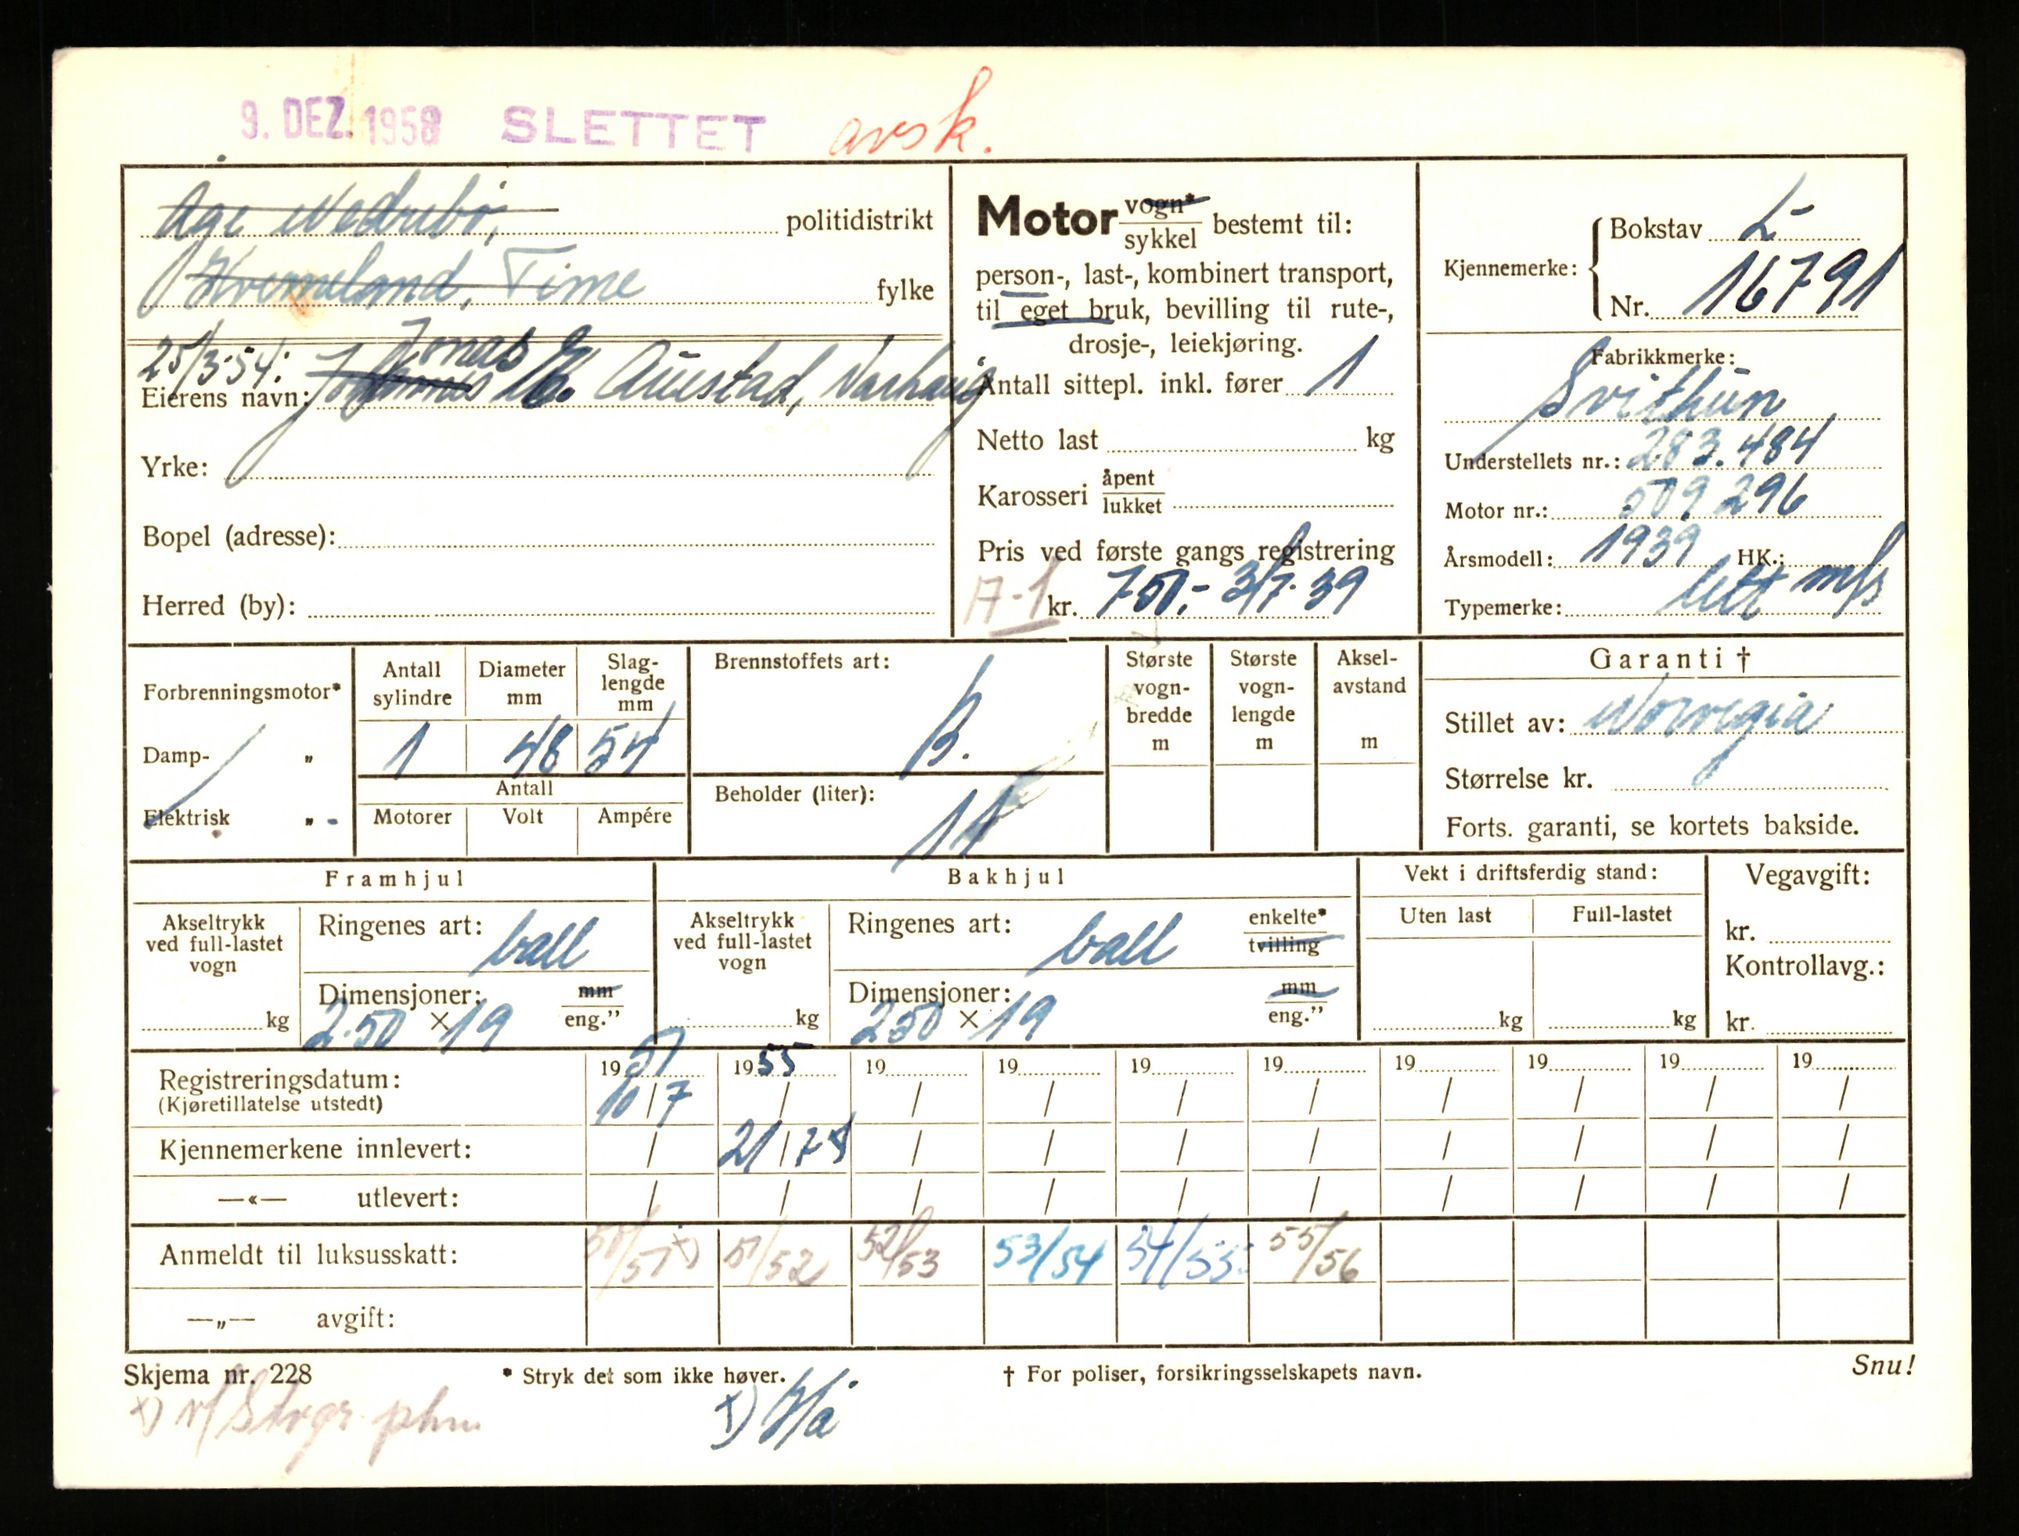 9. DEZ. 1958 SLETTET avsk.
Åge Nedrebø, politidistrikt
Kverneland, Time fylke
25/3-54: Jonas
Eierens navn: Johannes E. Auestad, Varhaug
Yrke:
Bopel (adresse):
Herred (by):
Motor vogn* / sykkel bestemt til:
person-, last-, kombinert transport,
til eget bruk, bevilling til rute-,
drosje-, leiekjøring.
Antall sittepl. inkl. fører 1
Netto last kg
Karosseri åpent / lukket
Pris ved første gangs registrering
A-1 kr. 750,- 3/7-39
Kjennemerke: Bokstav L-
Nr. 16791
Fabrikkmerke:
Svithun
Understellets nr.: 283.484
Motor nr.: 509296
Årsmodell: 1939 HK.:
Typemerke: lett m/s
Forbrenningsmotor*
Damp- „
Elektrisk „ -
Antall sylindre 1
Diameter mm 48
Slag-lengde mm 54
Antall
Motorer Volt Ampére
Brennstoffets art: B.
Beholder (liter): 11
Største vogn-bredde m
Største vogn-lengde m
Aksel-avstand m
Garanti †
Stillet av: Norvegia
Størrelse kr.
Forts. garanti, se kortets bakside.
Framhjul
Akseltrykk ved full-lastet vogn kg
Ringenes art: ball
Dimensjoner: mm / eng.”
2.50 × 19
Bakhjul
Akseltrykk ved full-lastet vogn kg
Ringenes art: ball enkelte* / tvilling
Dimensjoner: mm / eng.”
250 × 19
Vekt i driftsferdig stand:
Uten last Full-lastet
kg kg
Vegavgift:
kr.
Kontrollavg.:
kr.
Registreringsdatum: 1951 1955 19 19 19 19 19 19 19 19
(Kjøretillatelse utstedt) 10/7 / / / / / / / / /
Kjennemerkene innlevert: / 21/7 / / / / / / / /
—«— utlevert: / / / / / / / / / /
Anmeldt til luksusskatt: 50/51 x) 51/52 52/53 53/54 54/55 55/56
—„— avgift:
Skjema nr. 228 * Stryk det som ikke høver. † For poliser, forsikringsselskapets navn. Snu!
x)